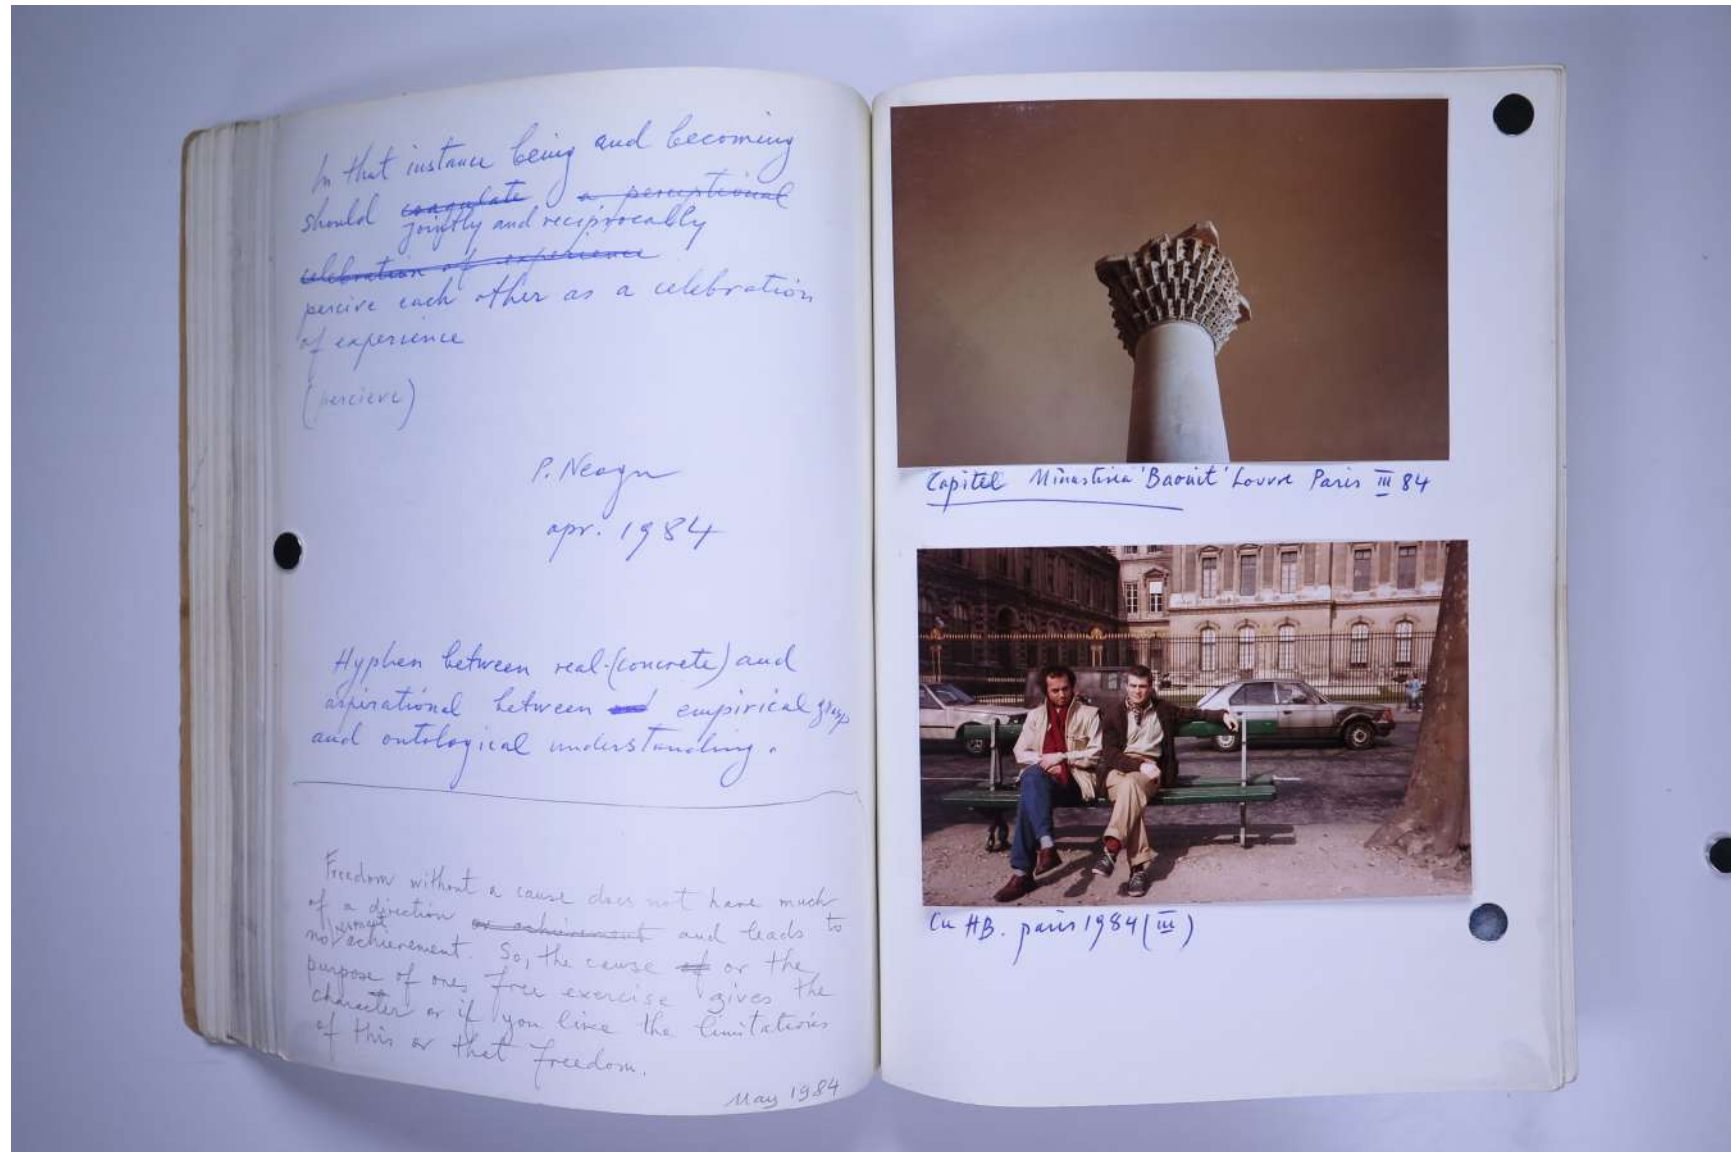 In that instance being and becoming
should coagulate a perceptional
jointly and reciprocally
celebration of experience
percive each other as a celebration
of experience
(percieve)
P. Neagu
apr. 1984
Hyphen between real-(concrete) and
aspirational between and empirical grasp
and ontological understanding.
Freedom without a cause does not have much
of a direction or achievement and leads to
no achievement. So, the cause of or the
purpose of ones free exercise gives the
character or if you like the limitations
of this or that freedom.
May 1984
Capitel Minastirea 'Baouit' Louvre Paris III 84
Cu HB. paris 1984 (III)